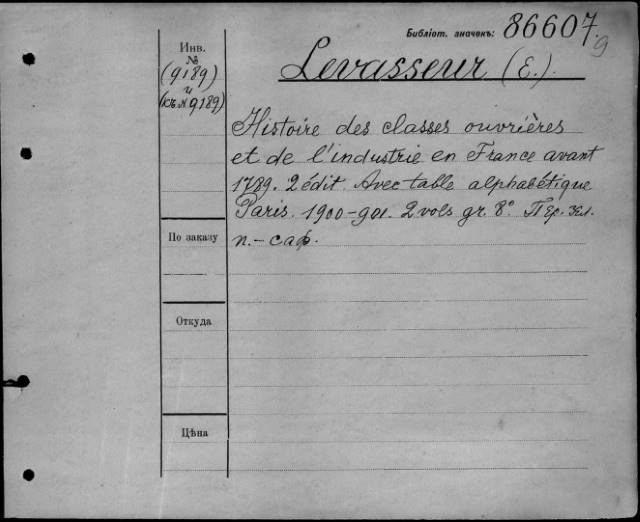 Библіот. значекъ: 86607.
9
Инв.
№
(9189)
и
(къ № 9189)
Levasseur (E.).
Histoire des classes ouvrières
et de l'industrie en France avant
1789. 2 édit. Avec table alphabétique
Paris. 1900-901. 2 vols gr. 8º. Пер. зел.
п.-саф.
По заказу
Откуда
Цѣна